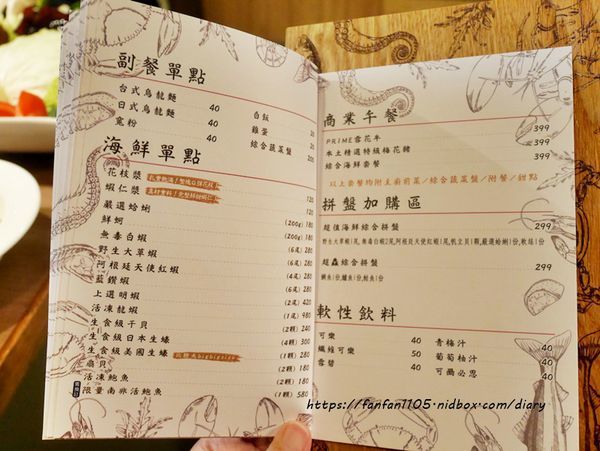 副餐單點
台式烏龍麵 40
日式烏龍麵 40
寬粉 40
白飯
雞蛋 20
綜合蔬菜盤 200
海鮮單點
花枝漿 120
蝦仁漿 120
嚴選蛤蜊 (200g) 180
鮮蚵 (200g) 180
無毒白蝦 (6尾)
野生大草蝦
阿根廷天使紅蝦
藍鑽蝦
上選明蝦
活凍龍蝦 980
生食級干貝 (2顆) 240
生食級日本生蠔
生食級美國生蠔 (1顆) 280
扇貝
活凍鮑魚 (1顆) 180
限量 南非活鮑魚 (1顆) 580
商業午餐
PRIME雪花牛 399
本土精選特級梅花豬 399
綜合海鮮套餐 399
以上套餐均附主廚前菜/綜合蔬菜盤/附餐/甜點
拼盤加購區
超值海鮮綜合拼盤 299
野生大草蝦1尾,無毒白蝦2尾,阿根廷天使紅蝦1尾,帆立貝1顆,嚴選蛤蜊1份,軟絲1份
超蟲綜合拼盤 299
鯛魚1份,鱸魚1份,鮭魚1份
軟性飲料
可樂 40
纖維可樂 50
雪碧 40
青梅汁 40
葡萄柚汁 40
可爾必思 40
https://fanfan1105.nidbox.com/diary